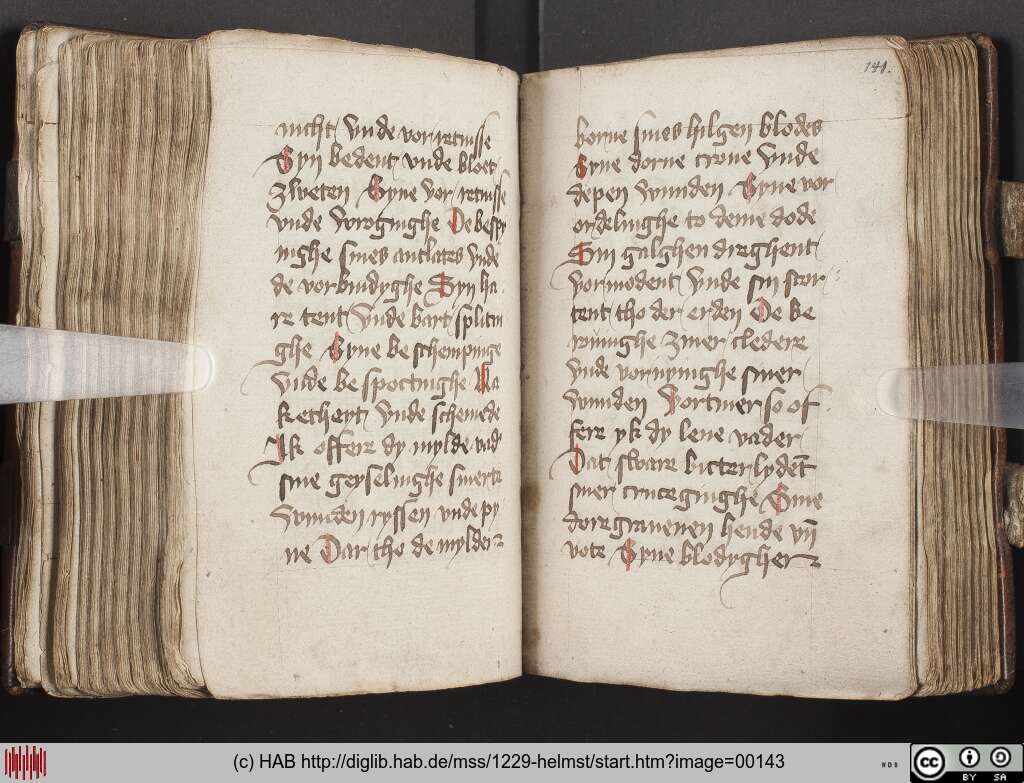 nicht vnde vorretnisse
Syn bedent vnde bloet
zweten Syne vor retnisse
vnde wroginghe De bespy
nighe sines antlates vnde
de vorbindyghe Syn ha
re tent vnde bart splitin
ghe Syne beschempinge
vnde be spottinghe Na
ketheyt vnde schemede
Ik offere dy mylde vad
sine geyselinghe smerte
wunden ryssen vnde py
ne Dar tho de mylder
141.
borne sines hilgen blodes
Syne dorne crone vnde
depen wunden Syne vor
ordelinghe to deme dode
Sin galghen dreghent
vormodent vnde sin stor
tent tho der erden De be
rouinghe zmer cledere
vnde vornyinghe smer
wunden Vortmer so of
fere yk dy leue vader
Dat sware bitter lydēt
smer crucegīghe Sine
doregrauenen hende vn̄
vote Syne blodygher
(c) HAB http://diglib.hab.de/mss/1229-helmst/start.htm?image=00143
WDB
cc BY SA